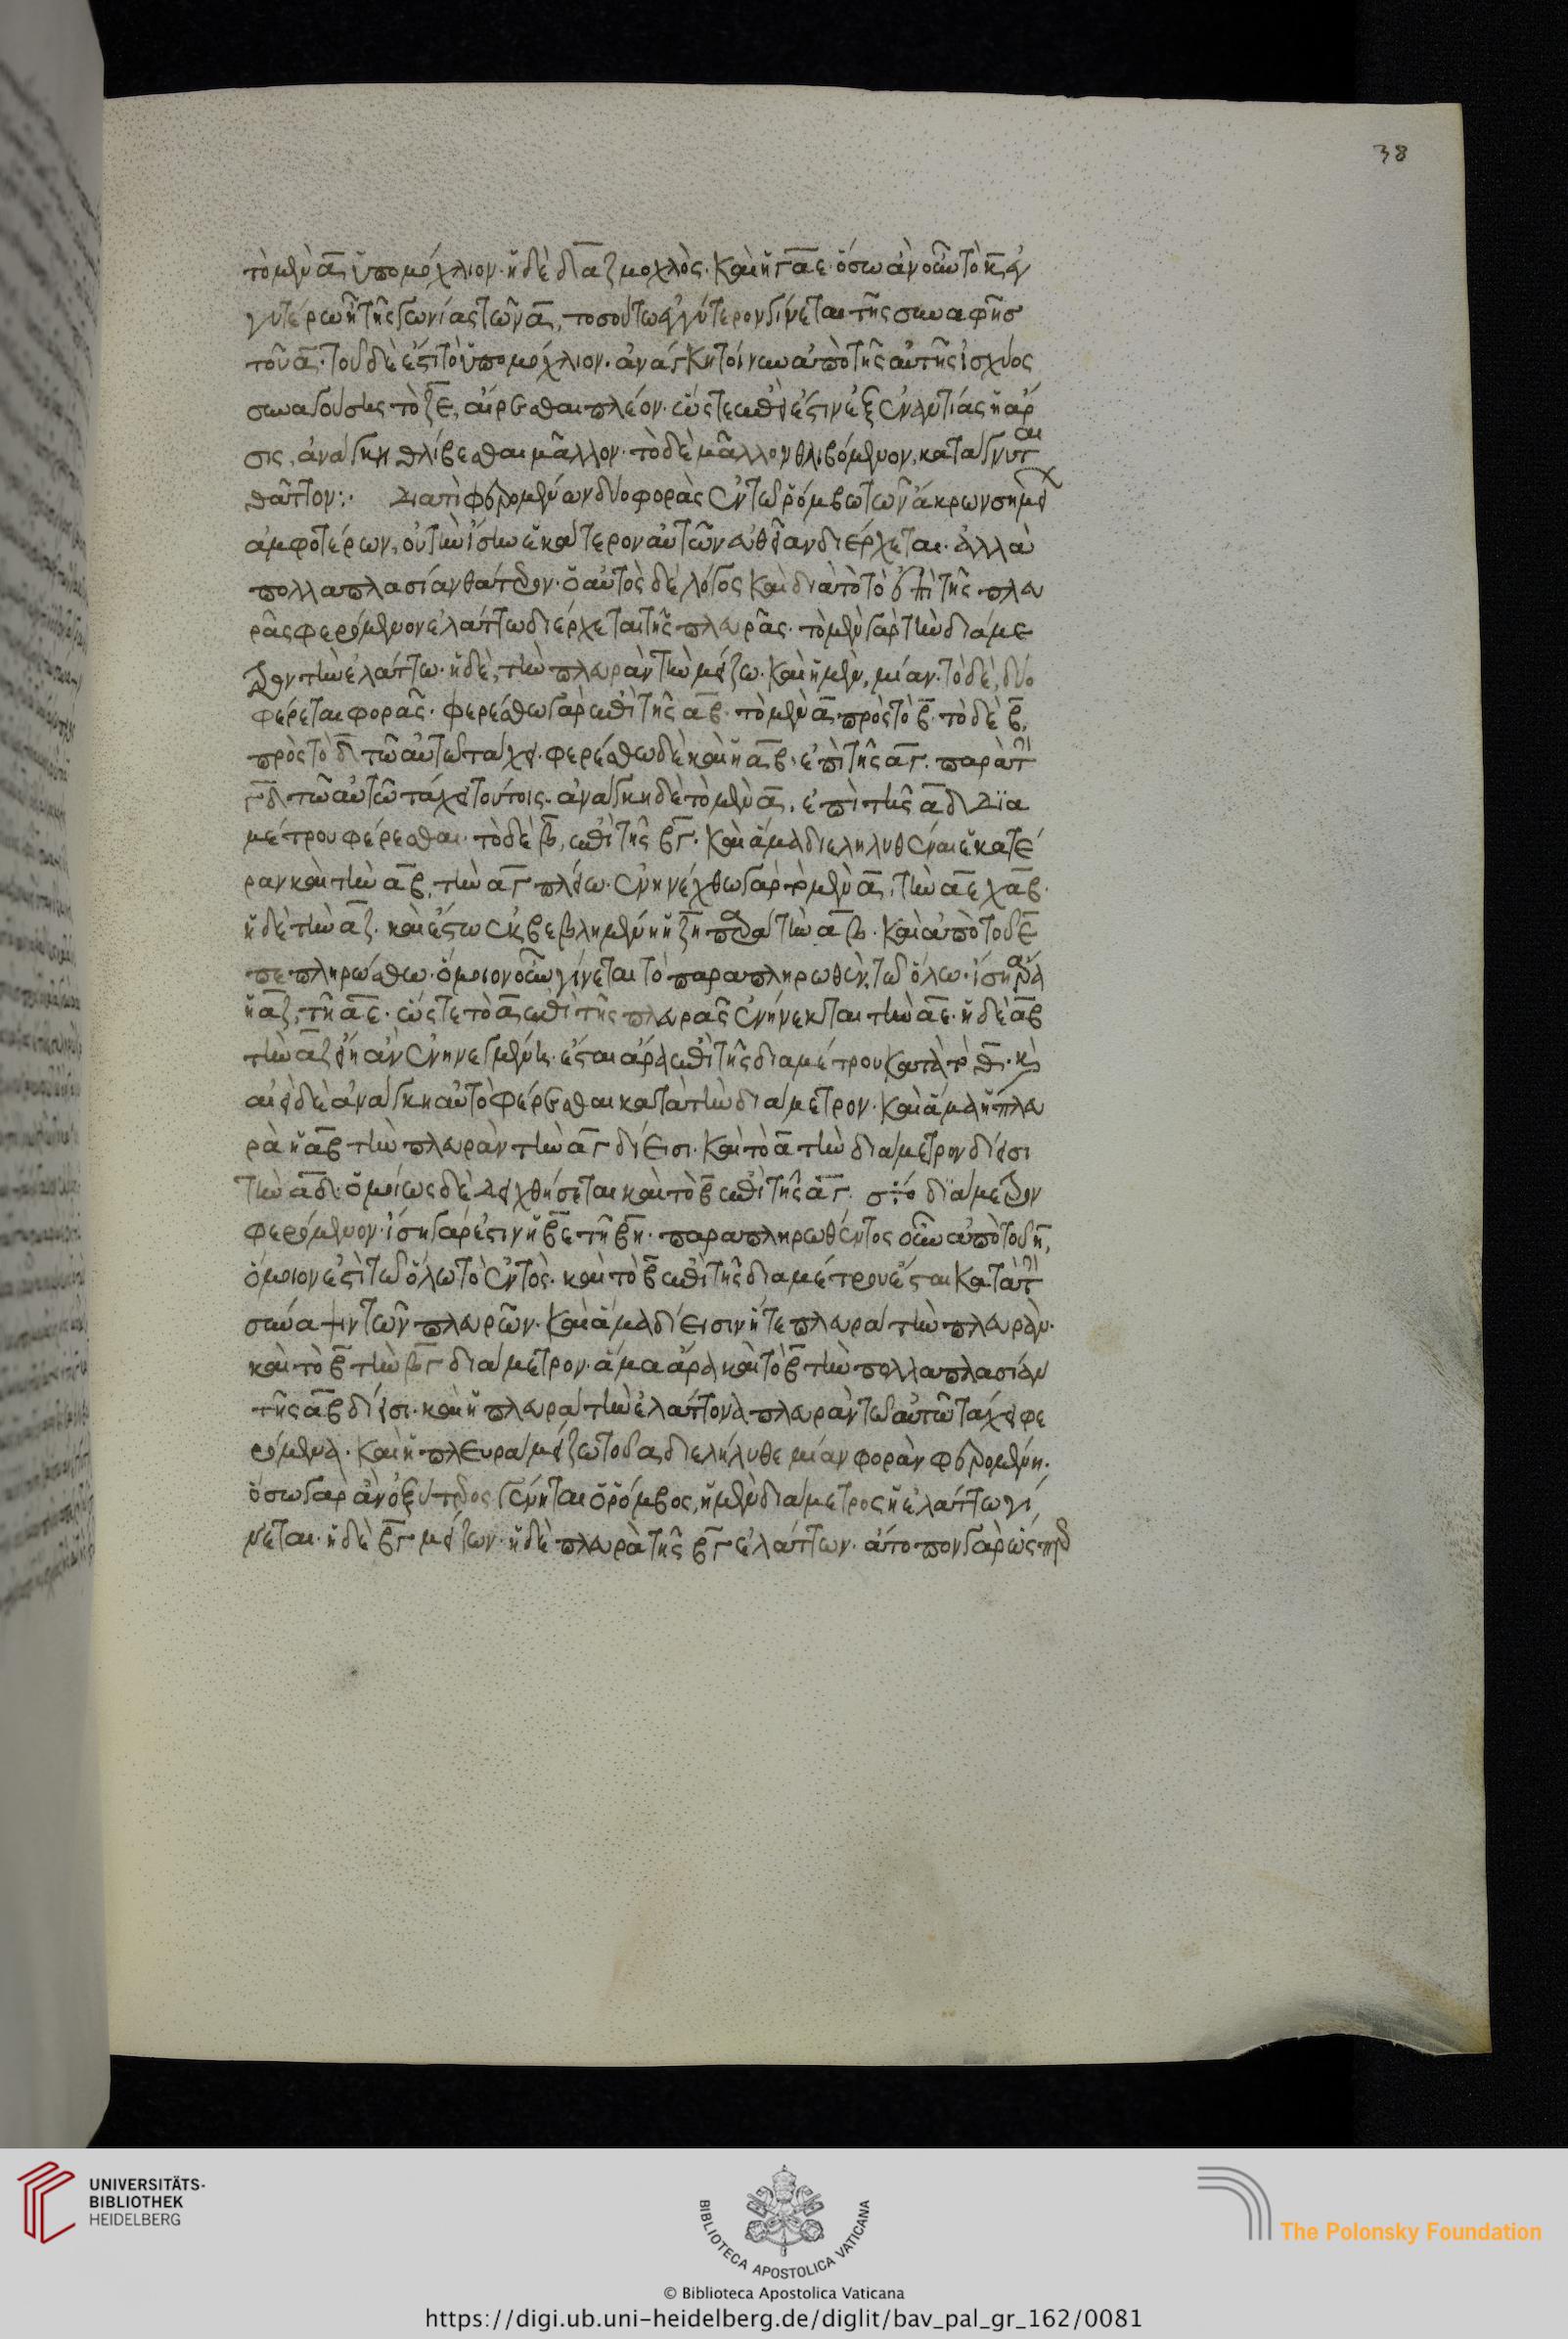 38
τὸ μὲν α, ὑπομόχλιον· ἡ δὲ δια ζ μοχλὸς. καὶ ἡ γ α ε· ὅσω ἂν οὖν τὸ κ ἐγ
γυτέρω ᾖ τῆς γωνίας τῶν α, τοσούτω ἐγγύτερον γίνεται τῆς συναφῆσ
τοῦ α· τοῦδε ἐστὶ τὸ ὑπομόχλιον. ἀνάγκη τοίνυν ἀπὸ τῆς αὐτῆς ἰσχύος
συναγούσης τὸ ζε, αἴρεσθαι πλέον. ὥστε ἐπεί ἐστιν ἐξ ἐναντίας ἡ ἄρ
σις, ἀνάγκη θλίβεσθαι μᾶλλον. τὸ δὲ μᾶλλον θλιβόμενον, κατάγνυται
θᾶττον:· Διατί φερομένων δύο φορὰς ἐν τῶ ῥόμβω τῶν ἄκρων σημεί
ἀμφοτέρων, οὐ τὴν ἴσην ἑκάτερον αὐτῶν εὐθεῖαν διέρχεται. ἀλλὰ
πολλαπλασίαν θάτερον. ὁ αὐτὸς δὲ λόγος καὶ διατὸ τὸ ἐπὶ τῆς πλευ
ρᾶς φερόμενον ἐλάττω διέρχεται τῆς πλευρᾶς. τὸ μὲν γὰρ τὴν διάμε
τρον τὴν ἐλάττω. ἡ δὲ, τὴν πλευρὰν τὴν μείζω. καὶ ἡ μὲν, μίαν. τὸ δὲ, δύο
φέρεται φορᾶς. φερέσθω γὰρ ἐπὶ τῆς αβ. τὸ μὲν α πρὸς τὸ β. τὸ δὲ β,
πρὸς τὸ δ τῶ αὐτῶ τάχει. φερέσθω δὲ καὶ ἡ αβ. ἐπὶ τῆς αγ. παρὰ τὴν
γδ τῶ αὐτῶ τάχει τούτοις. ἀνάγκη δὲ τὸ μὲν α, ἐπὶ τῆς αδ δια
μέτρου φέρεσθαι. τὸ δὲ β, ἐπὶ τῆς βγ. καὶ ἅμα διεληλυθέναι ἑκατέ
ραν καὶ τὴν αβ, τὴν αγ πλέω. ἐνηνέχθω γὰρ τὸ μὲν α, τὴν αε χ αβ.
ἡ δὲ τὴν αζ. καὶ ἔστω ἐκβεβλημένη ἡ ζη παρὰ τὴν αβ. καὶ ἀπὸ τοῦ ε
πεπληρώσθω. ὅμοιον οὖν γίνεται τὸ παραπληρωθὲν τῶ ὅλω. ἴση ἄρα
ἡ αζ, τῆ αε. ὥστε τὸ α ἐπὶ τῆς πλευρᾶς ἐνήνεκται τὴν αε. ἡ δὲ αβ
τὴν αζ εἴη ἂν ἐνηνεγμένη. ἔσται ἄρα ἐπὶ τῆς διαμέτρου κατὰ τὸ θ. κ
αἰεὶ δὲ ἀνάγκη αὐτὸ φέρεσθαι κατὰ τὴν διάμετρον. καὶ ἅμα ἡ πλευ
ρὰ ἡ αβ τὴν πλευρὰν τὴν αγ δίεισι. καὶ τὸ α τὴν διάμετρον δίεισι
τὴν αδ. ὁμοίως δὲ δειχθήσεται καὶ τὸ β ἐπὶ τῆς αγ. διάμετρον
φερόμενον. ἴση γάρ ἐστιν ἡ βε τῆ βη. παραπληρωθέντος οὖν ἀπὸ τοῦ η,
ὅμοιον ἐστὶ τῶ ὅλω τὸ ἐντὸς. καὶ τὸ β ἐπὶ τῆς διαμέτρου ἔσται κατὰ τὴν
σύναψιν τῶν πλευρῶν. καὶ ἅμα δίεισιν ἥ τε πλευρὰ τὴν πλευράν.
καὶ τὸ β τὴν βγ διάμετρον. ἅμα ἄρα καὶ τὸ β τὴν πολλαπλασίαν
τῆς αβ δίεισι. καὶ ἡ πλευρὰ τὴν ἐλάττονα πλευρὰν τῶ αὐτῶ τάχει φε
ρόμενα. καὶ ἡ πλευρὰ μείζω τοῦ α διελήλυθε μίαν φορὰν φερομένη.
ὅσω γὰρ ἂν ὀξύτερος γένηται ὁ ῥόμβος, ἡ μὲν διάμετρος ἡ ἐλάττω γί
νεται. ἡ δὲ βγ μείζων. ἡ δὲ πλευρὰ τῆς βγ ἐλάττων. ἄτοπον γὰρ ὥσπερ
UNIVERSITÄTS-
BIBLIOTHEK
HEIDELBERG
BIBLIOTECA APOSTOLICA VATICANA
The Polonsky Foundation
© Biblioteca Apostolica Vaticana
https://digi.ub.uni-heidelberg.de/diglit/bav_pal_gr_162/0081